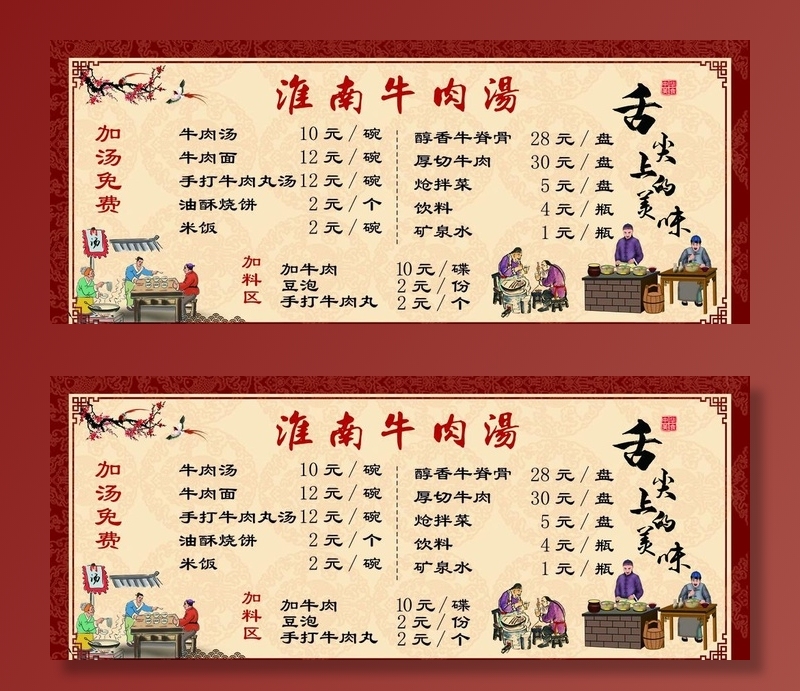 淮南牛肉湯
加汤免费
牛肉汤 10元/碗
牛肉面 12元/碗
手打牛肉丸汤 12元/碗
油酥烧饼 2元/个
米饭 2元/碗
醇香牛脊骨 28元/盘
厚切牛肉 30元/盘
炝拌菜 5元/盘
饮料 4元/瓶
矿泉水 1元/瓶
加料区
加牛肉 10元/碟
豆泡 2元/份
手打牛肉丸 2元/个
舌尖上的美味
汤
淮南牛肉湯
加汤免费
牛肉汤 10元/碗
牛肉面 12元/碗
手打牛肉丸汤 12元/碗
油酥烧饼 2元/个
米饭 2元/碗
醇香牛脊骨 28元/盘
厚切牛肉 30元/盘
炝拌菜 5元/盘
饮料 4元/瓶
矿泉水 1元/瓶
加料区
加牛肉 10元/碟
豆泡 2元/份
手打牛肉丸 2元/个
舌尖上的美味
汤